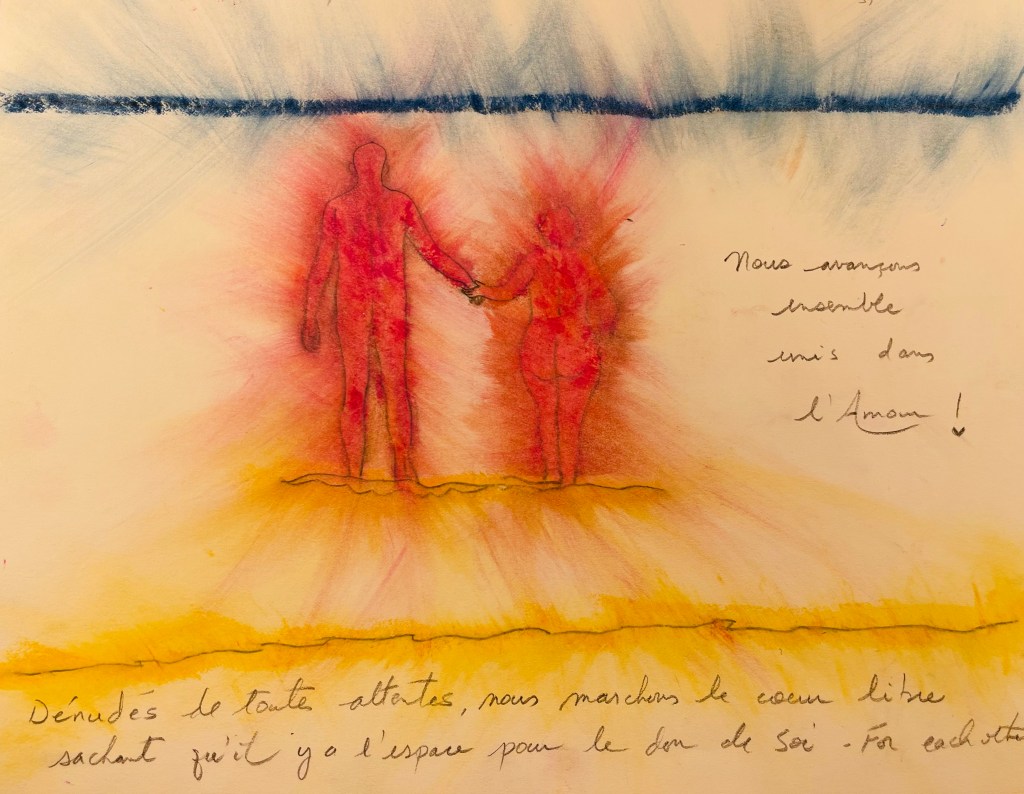 Nous avançons
ensemble
unis dans
l'Amour !
Dénudés de toutes attentes, nous marchons le cœur libre
sachant qu'il y a l'espace pour le don de Soi - For each other